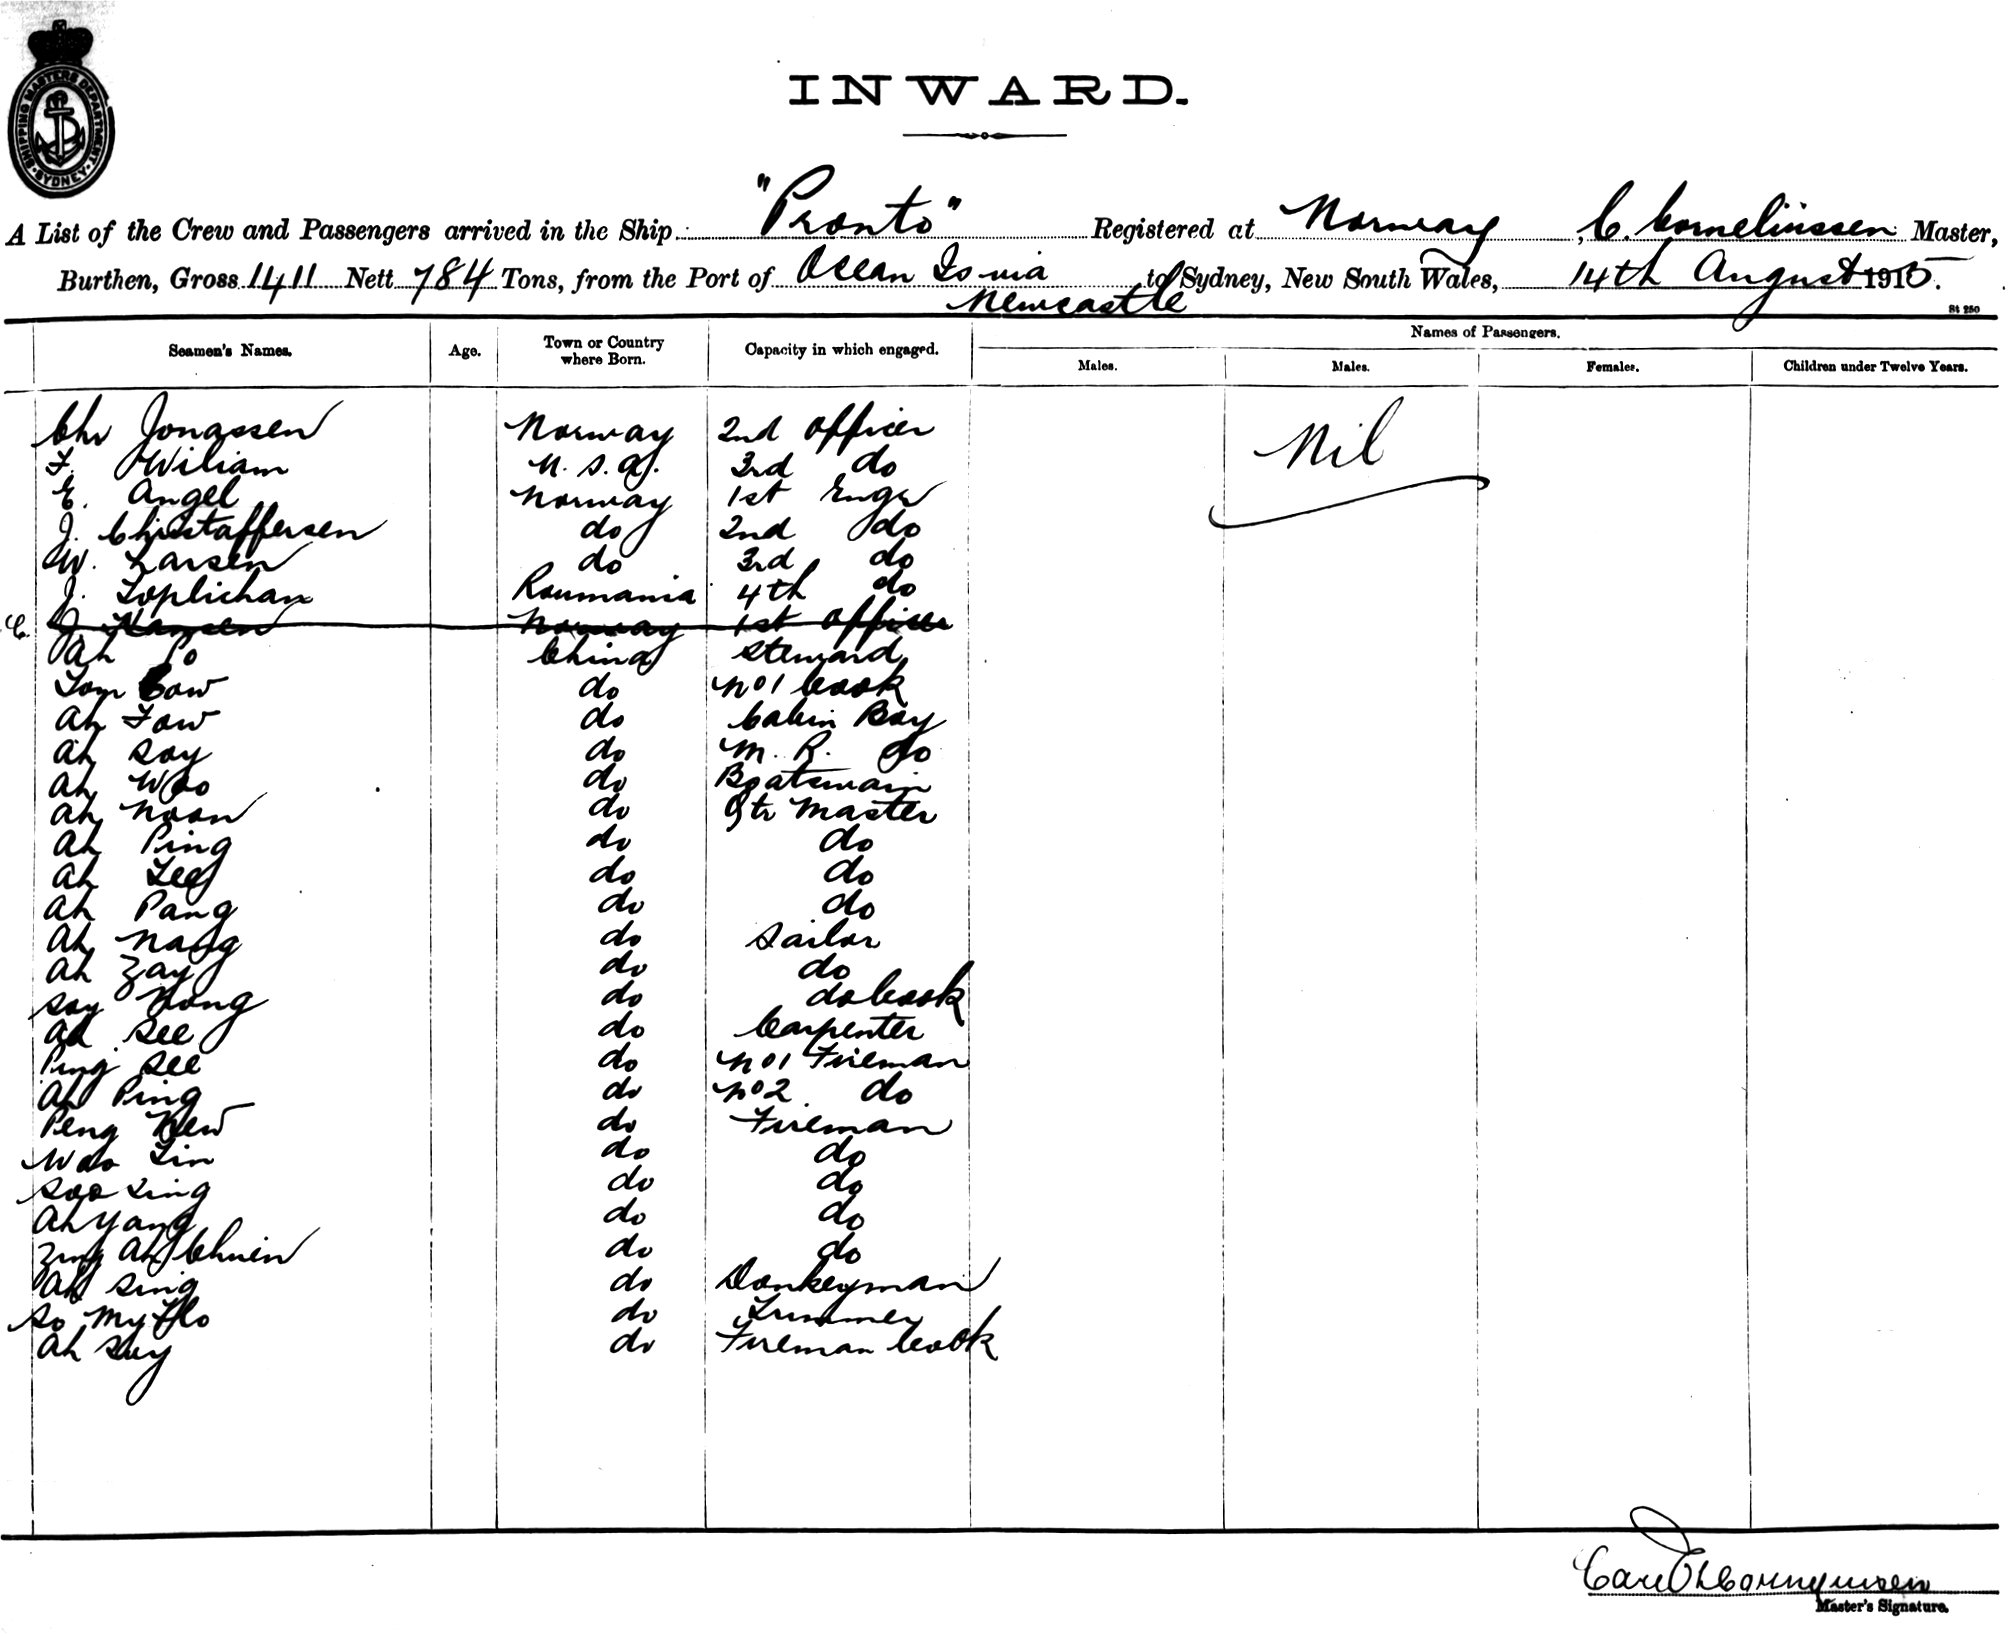 SHIPPING MASTERS DEPARTMENT SYDNEY
INWARD.
A List of the Crew and Passengers arrived in the Ship "Pronto" Registered at Norway, C. Corneliussen Master,
Burthen, Gross 1411 Nett 784 Tons, from the Port of Ocean Is via Newcastle to Sydney, New South Wales, 14th August 1915.
St 250
Seamen's Names. Age. Town or Country where Born. Capacity in which engaged. Names of Passengers.
Males. Males. Females. Children under Twelve Years.
Chr Jonassen Norway 2nd Officer Nil
F. Wiliam U.S.A. 3rd do
E. Angel Norway 1st Engr
J. Christaffersen do 2nd do
W. Larsen do 3rd do
J. Toplichan Roumania 4th do
C. J. Hansen Norway 1st Officer
Ah Po China Steward
Tom Cow do No 1 Cook
Ah Fow do Cabin Boy
Ah Soy do M. R. do
Ah Woo do Boatswain
Ah Noon do Qtr Master
Ah Ping do do
Ah Lee do do
Ah Pang do do
Ah Nang do Sailor
Ah Zay do do
Soy Kong do do Cook
Ah See do Carpenter
Ping See do No 1 Fireman
Ah Ping do No 2 do
Peng New do Fireman
Woo Lin do do
Soo Ling do do
Ah Yang do do
Zung Ah Chuen do do
Ah Sing do Donkeyman
So My Flo do Trimmer
Ah Suy do Fireman Cook
Master's Signature.